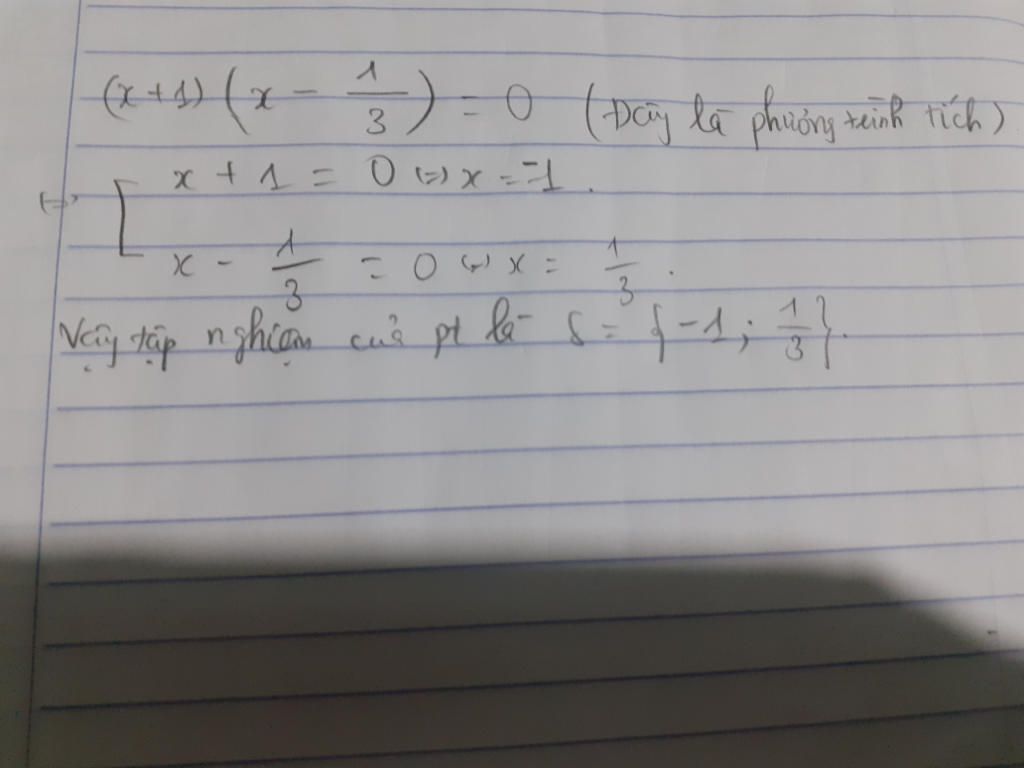 (x+1)(x - 1/3) = 0 (Đây là phương trình tích)
⇔ [ x + 1 = 0 ⇔ x = -1.
x - 1/3 = 0 ⇔ x = 1/3.
Vậy tập nghiệm của pt là S = {-1; 1/3}.